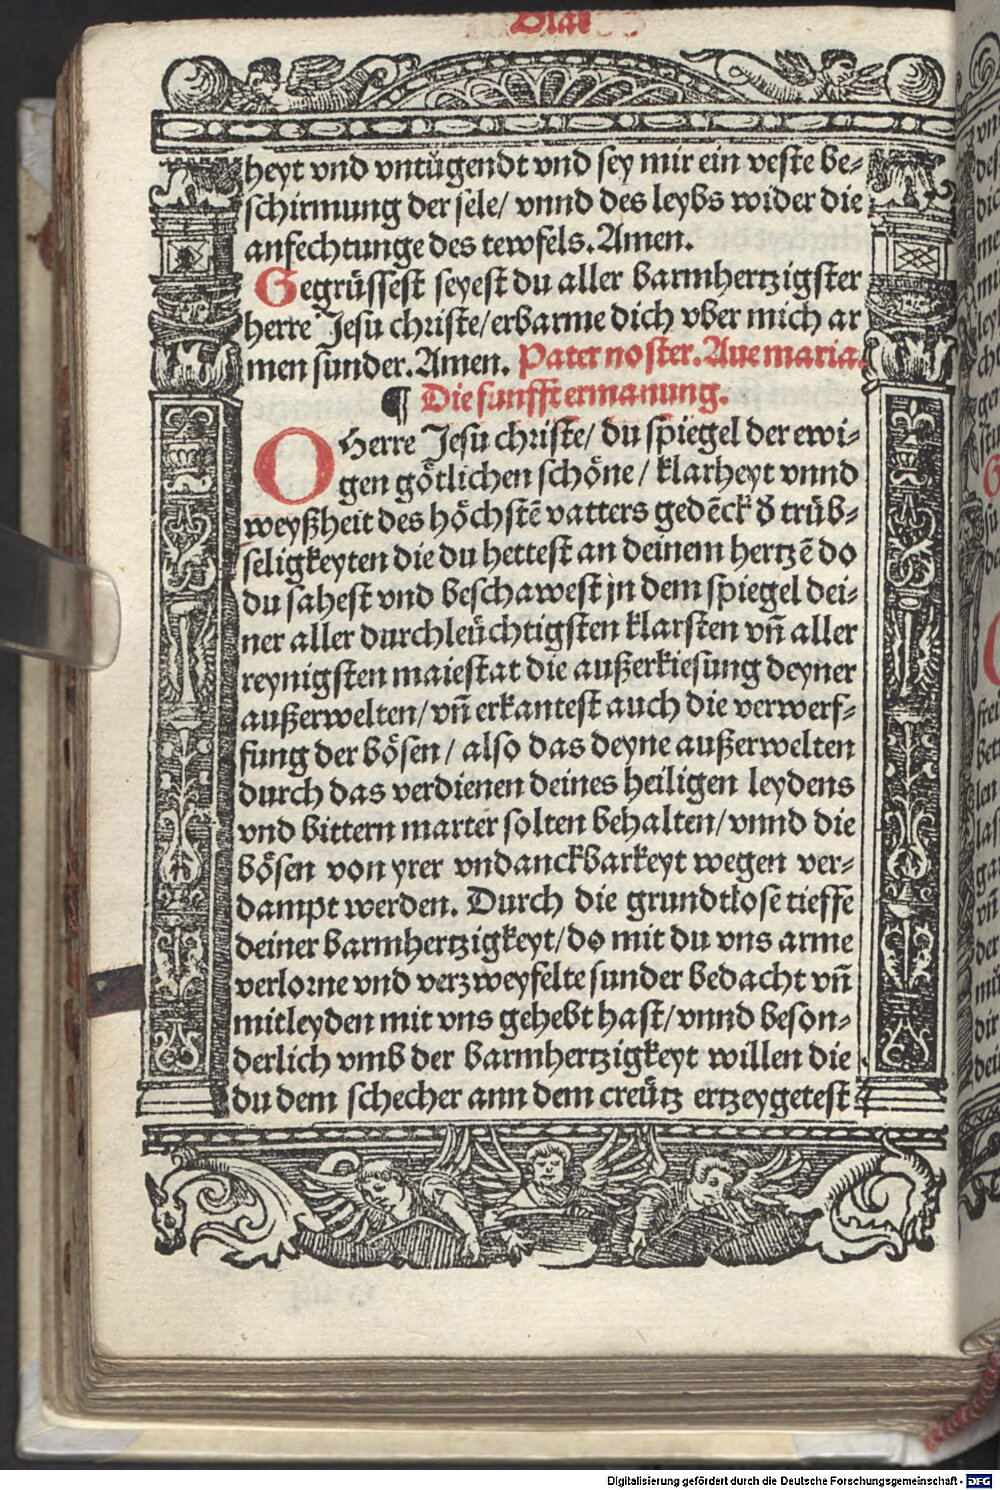 Blat
heyt vnd vntügendt vnd sey mir ein veste be-
schirmung der sele/ vnnd des leybs wider die
anfechtunge des tewfels. Amen.
Gegrüssest seyest du aller barmhertzigster
herre Jesu christe/ erbarme dich vber mich ar
men sunder. Amen. Pater noster. Aue maria.
¶ Die funfft ermanung.
O Herre Jesu christe/ du spiegel der ewi-
gen götlichen schöne/ klarheyt vnnd
weyßheit des höchstē vatters gedēck d̄ trüb-
seligkeyten die du hettest an deinem hertzē do
du sahest vnd beschawest jn dem spiegel dei-
ner aller durchleüchtigsten klarsten vn̄ aller
reynigsten maiestat die außerkiesung deyner
außerwelten/ vn̄ erkantest auch die verwerf-
fung der bösen/ also das deyne außerwelten
durch das verdienen deines heiligen leydens
vnd bittern marter solten behalten/ vnnd die
bösen von yrer vndanckbarkeyt wegen ver-
dampt werden. Durch die grundtlose tieffe
deiner barmhertzigkeyt/ do mit du vns arme
verlorne vnd verzweyfelte sunder bedacht vn̄
mitleyden mit vns gehebt hast/ vnnd beson-
derlich vmb der barmhertzigkeyt willen die
du dem schecher ann dem creütz ertzeygetest
Digitalisierung gefördert durch die Deutsche Forschungsgemeinschaft - DFG